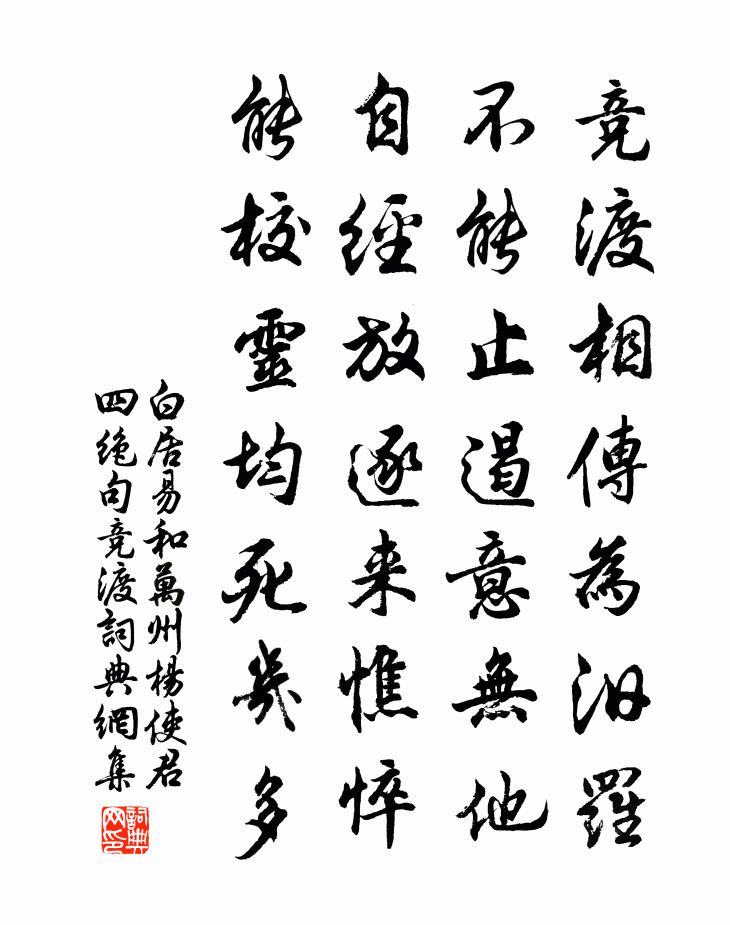 競渡相傳為汨羅
不能止遏意無他
自經放逐来憔悴
能校靈均死幾多
白居易和萬州楊使君
四絶句競渡詞典網集
詞典
网印